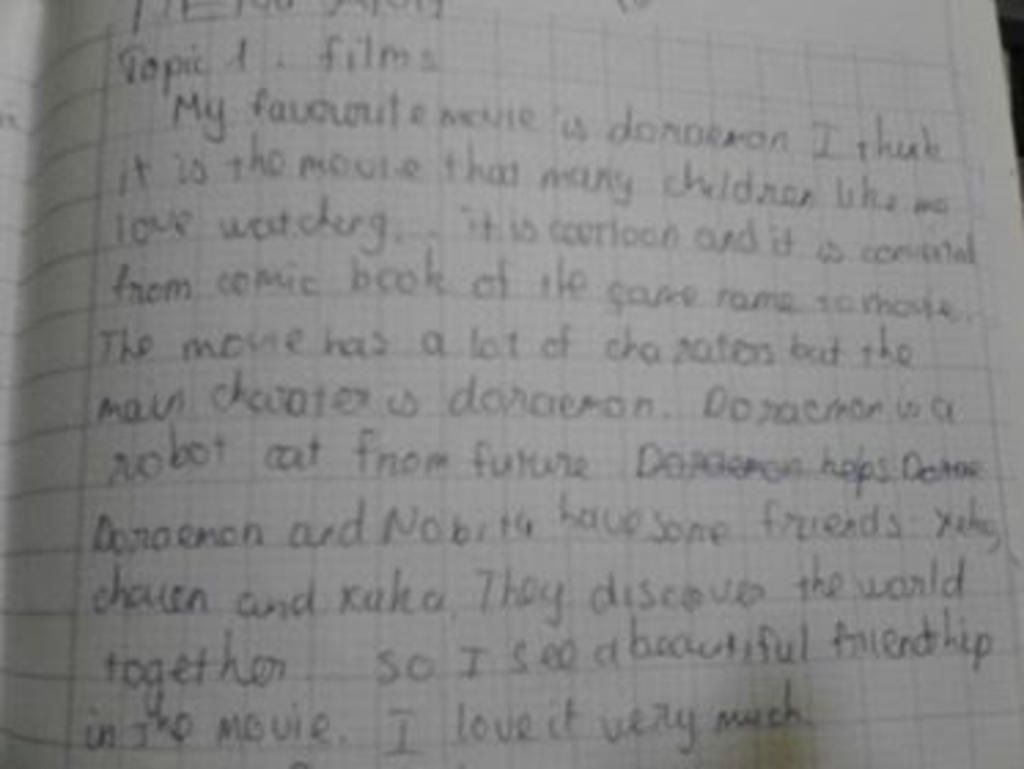 Topic 1. films
My favourite movie is doraemon I think
it is the movie that many children like me
love watching... it is cartoon and it is
from comic book of the same name to movie.
The movie has a lot of but the
main is doraemon. Doraemon is a
robot cat from future Doraemon helps
Doraemon and Nobita have some friends
and xuka. They discover the world
together so I see a beautiful friendship
in the movie. I love it very much.